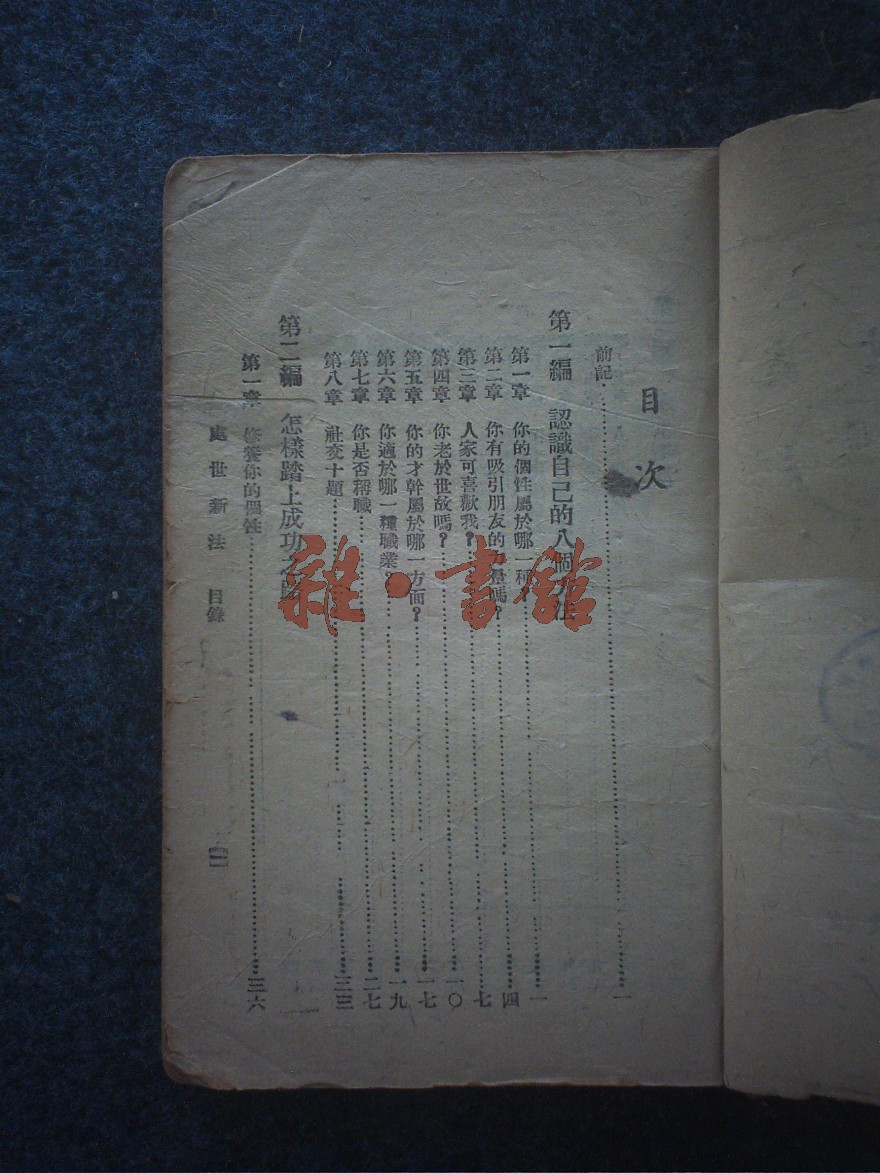 目次
前記……一
第一編 認識自己的八個方法
第一章 你的個性屬於哪一種……一
第二章 你有吸引朋友的力量嗎？……四
第三章 人家可喜歡我？……七
第四章 你老於世故嗎？……一〇
第五章 你的才幹屬於哪一方面？……一七
第六章 你適於哪一種職業？……一九
第七章 你是否稱職……二七
第八章 社交十題……三三
第二編 怎樣踏上成功之路
第一章 修養你的個性……三六
處世新法 目錄
雜·書館